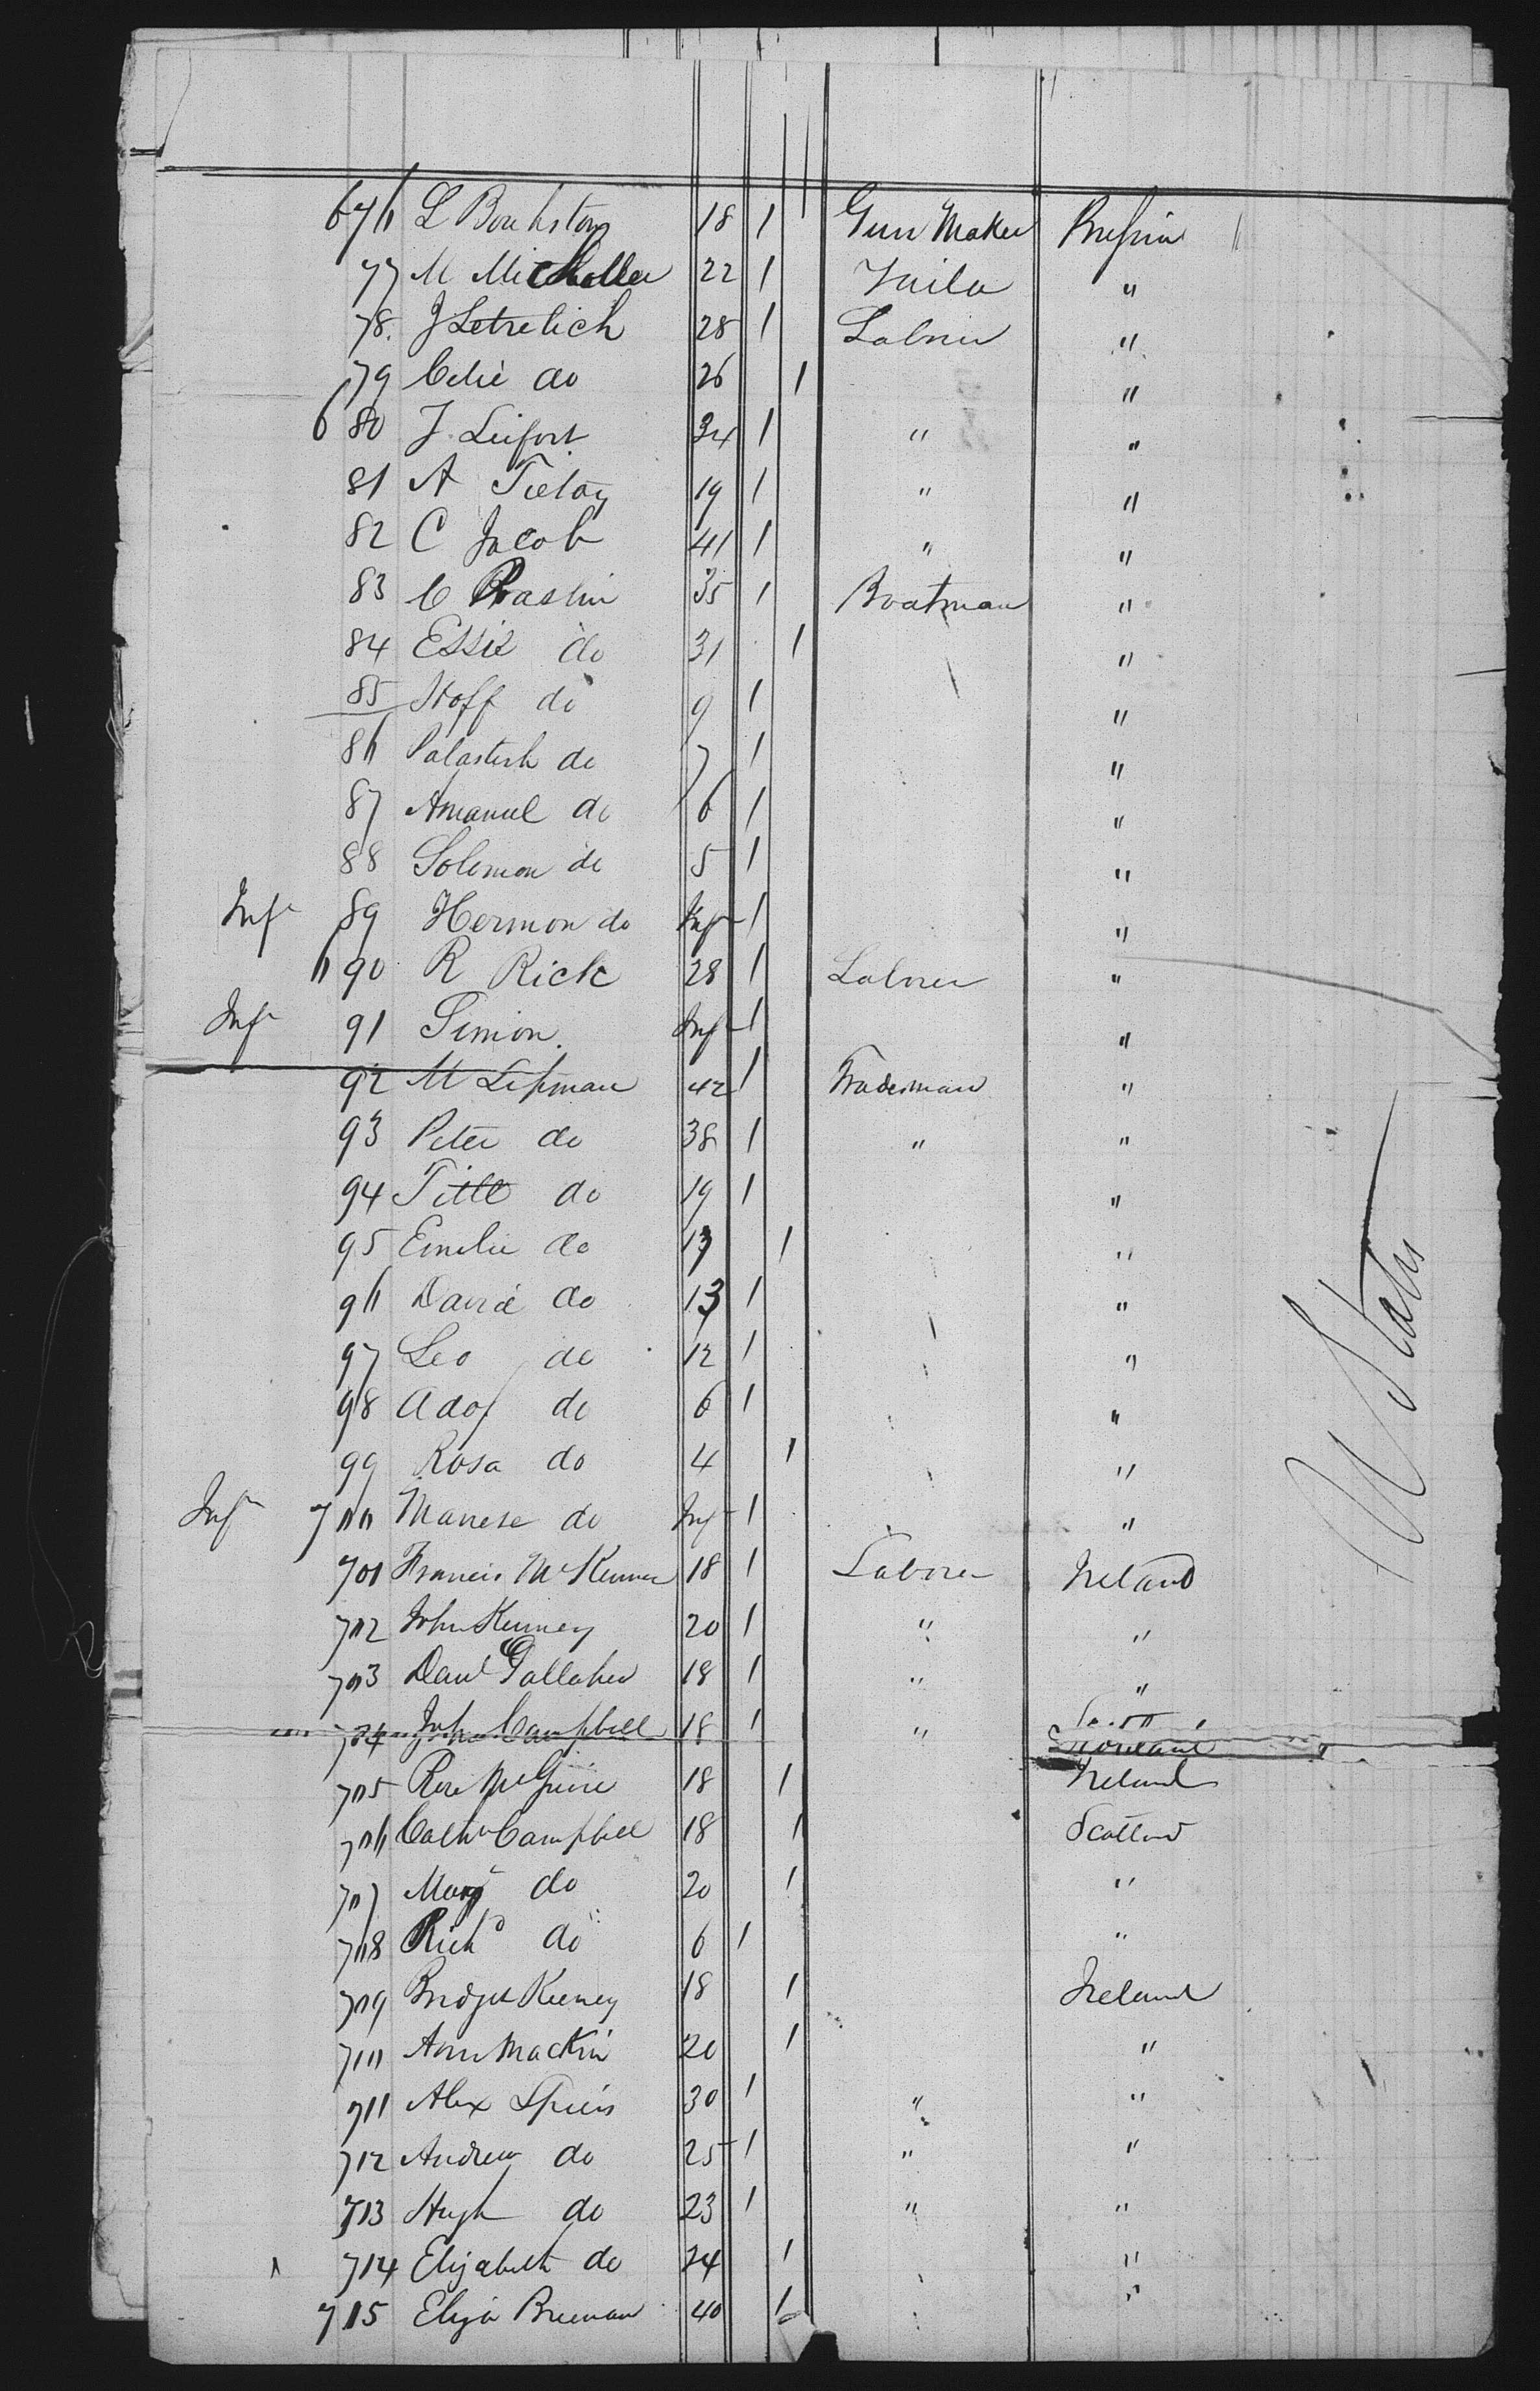 676 L Bouhston 18 1 Gun Maker Prussia
77 M Micholler 22 1 Tailor "
78. J Letrelich 28 1 Laborer "
79 Celie do 26 1 "
680 J. Leifort 34 1 " "
81 A Tieloy 19 1 " "
82 C Jacob 41 1 " "
83 C Praslin 35 1 Boatman "
84 Essie do 31 1 "
85 Stoff do 9 1 "
86 Palastish do 7 1 "
87 Amanuel do 6 1 "
88 Solomon do 5 1 "
Inf 89 Hermon do Inf 1 "
690 R Rick 28 1 Laborer "
Inf 91 Simon. Inf 1 "
92 M Lipman 42 1 Tradesman "
93 Peter do 38 1 " "
94 Title do 19 1 "
95 Emelie do 13 1 "
96 David do 13 1 "
97 Leo do 12 1 "
98 Adof do 6 1 "
99 Rosa do 4 1 "
Inf 700 Manese do Inf 1 "
U States
701 Francis McKenna 18 1 Laborer Ireland
702 John Kenney 20 1 " "
703 Danl Gallaher 18 1 " "
704 John Campbell 18 1 "
705 Rose McGuire 18 1 Ireland
706 Cathn Campbell 18 1 Scotland
707 Mary do 20 1 "
708 Richd do 6 1 "
709 Bridget Keeney 18 1 Ireland
710 Ann Mackin 20 1 "
711 Alex Spiers 30 1 " "
712 Andrew do 25 1 " "
713 Hugh do 23 1 " "
714 Elizabeth do 24 1 "
715 Eliza Breenan 40 1 "